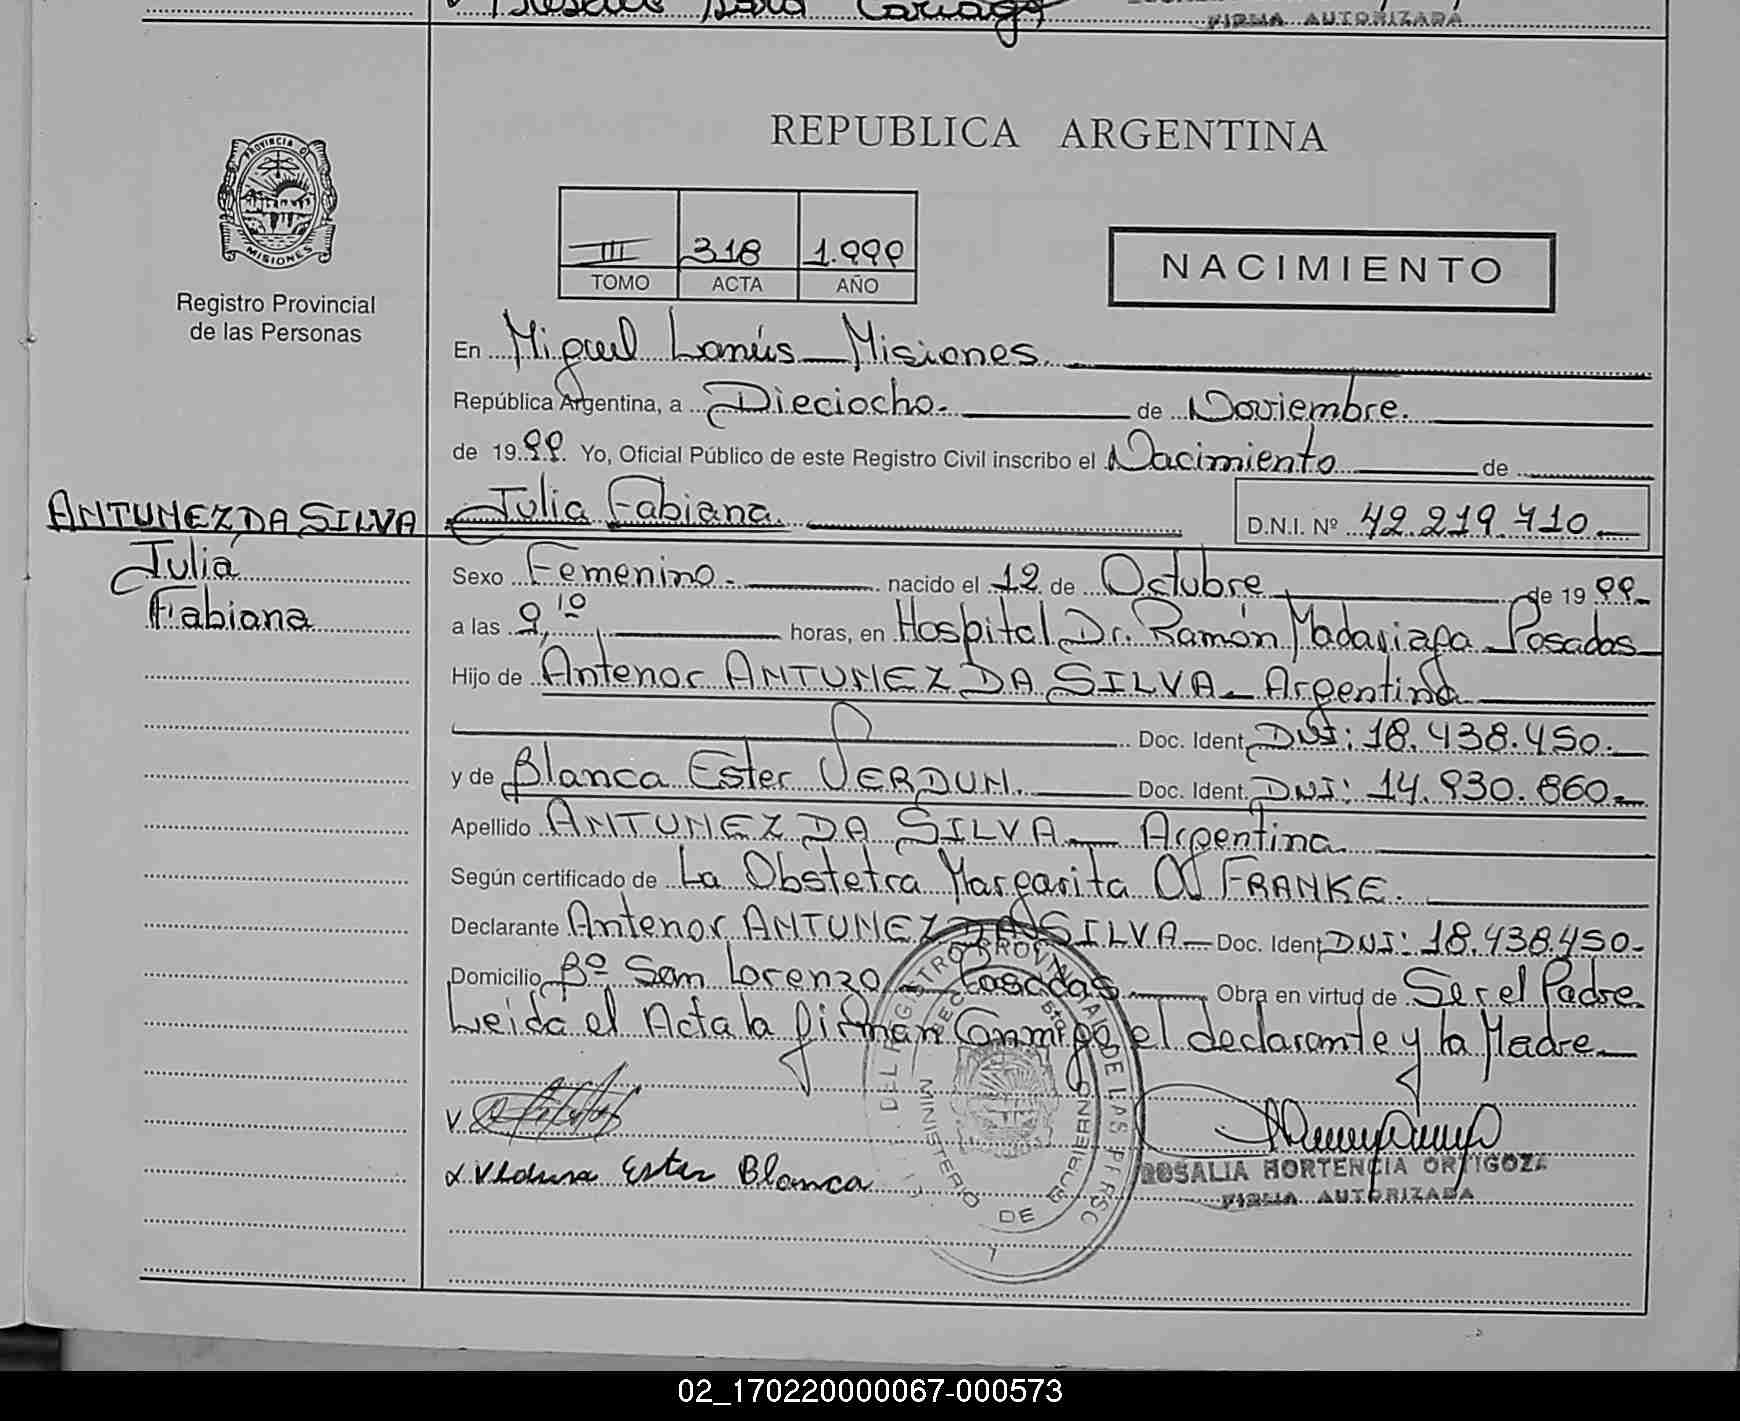 FIRMA AUTORIZADA
PROVINCIA D
MISIONES
Registro Provincial
de las Personas
REPUBLICA ARGENTINA
III 318 1.999
TOMO ACTA AÑO
NACIMIENTO
En Miguel Lanús - Misiones.
República Argentina, a Dieciocho. de Noviembre.
de 1999. Yo, Oficial Público de este Registro Civil inscribo el Nacimiento de
ANTUNEZ DA SILVA Julia Fabiana. D.N.I. Nº 42.219.710.
Julia
Fabiana
Sexo Femenino. nacido el 12 de Octubre de 1999
a las 9,10 horas, en Hospital Dr. Ramón Madariaga Posadas
Hijo de Antenor ANTUNEZ DA SILVA - Argentina
Doc. Ident. DNI: 18.438.450.
y de Blanca Ester VERDUN. Doc. Ident. DNI: 14.930.860.
Apellido ANTUNEZ DA SILVA - Argentina.
Según certificado de La Obstetra Margarita FRANKE.
Declarante Antenor ANTUNEZ DA SILVA - Doc. Ident. DNI: 18.438.450.
Domicilio Bº San Lorenzo - Posadas Obra en virtud de Ser el Padre.
Leida el Acta la firman Conmigo el declarante y la Madre
V.
Ester Blanca
ROSALIA HORTENCIA ORTIGOZA
FIRMA AUTORIZADA
MINISTERIO DE GOBIERNO
02_170220000067-000573